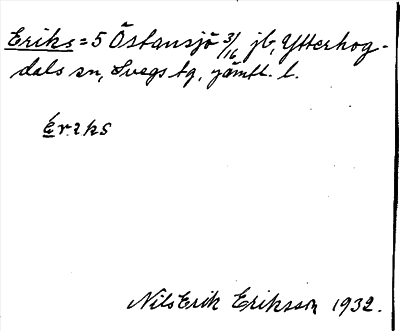 Eriks = 5 Östansjö 3/16 jb, Ytterhog-
dals sn, Svegs tg, jämtl. l.
Nils Erik Eriksson 1932.